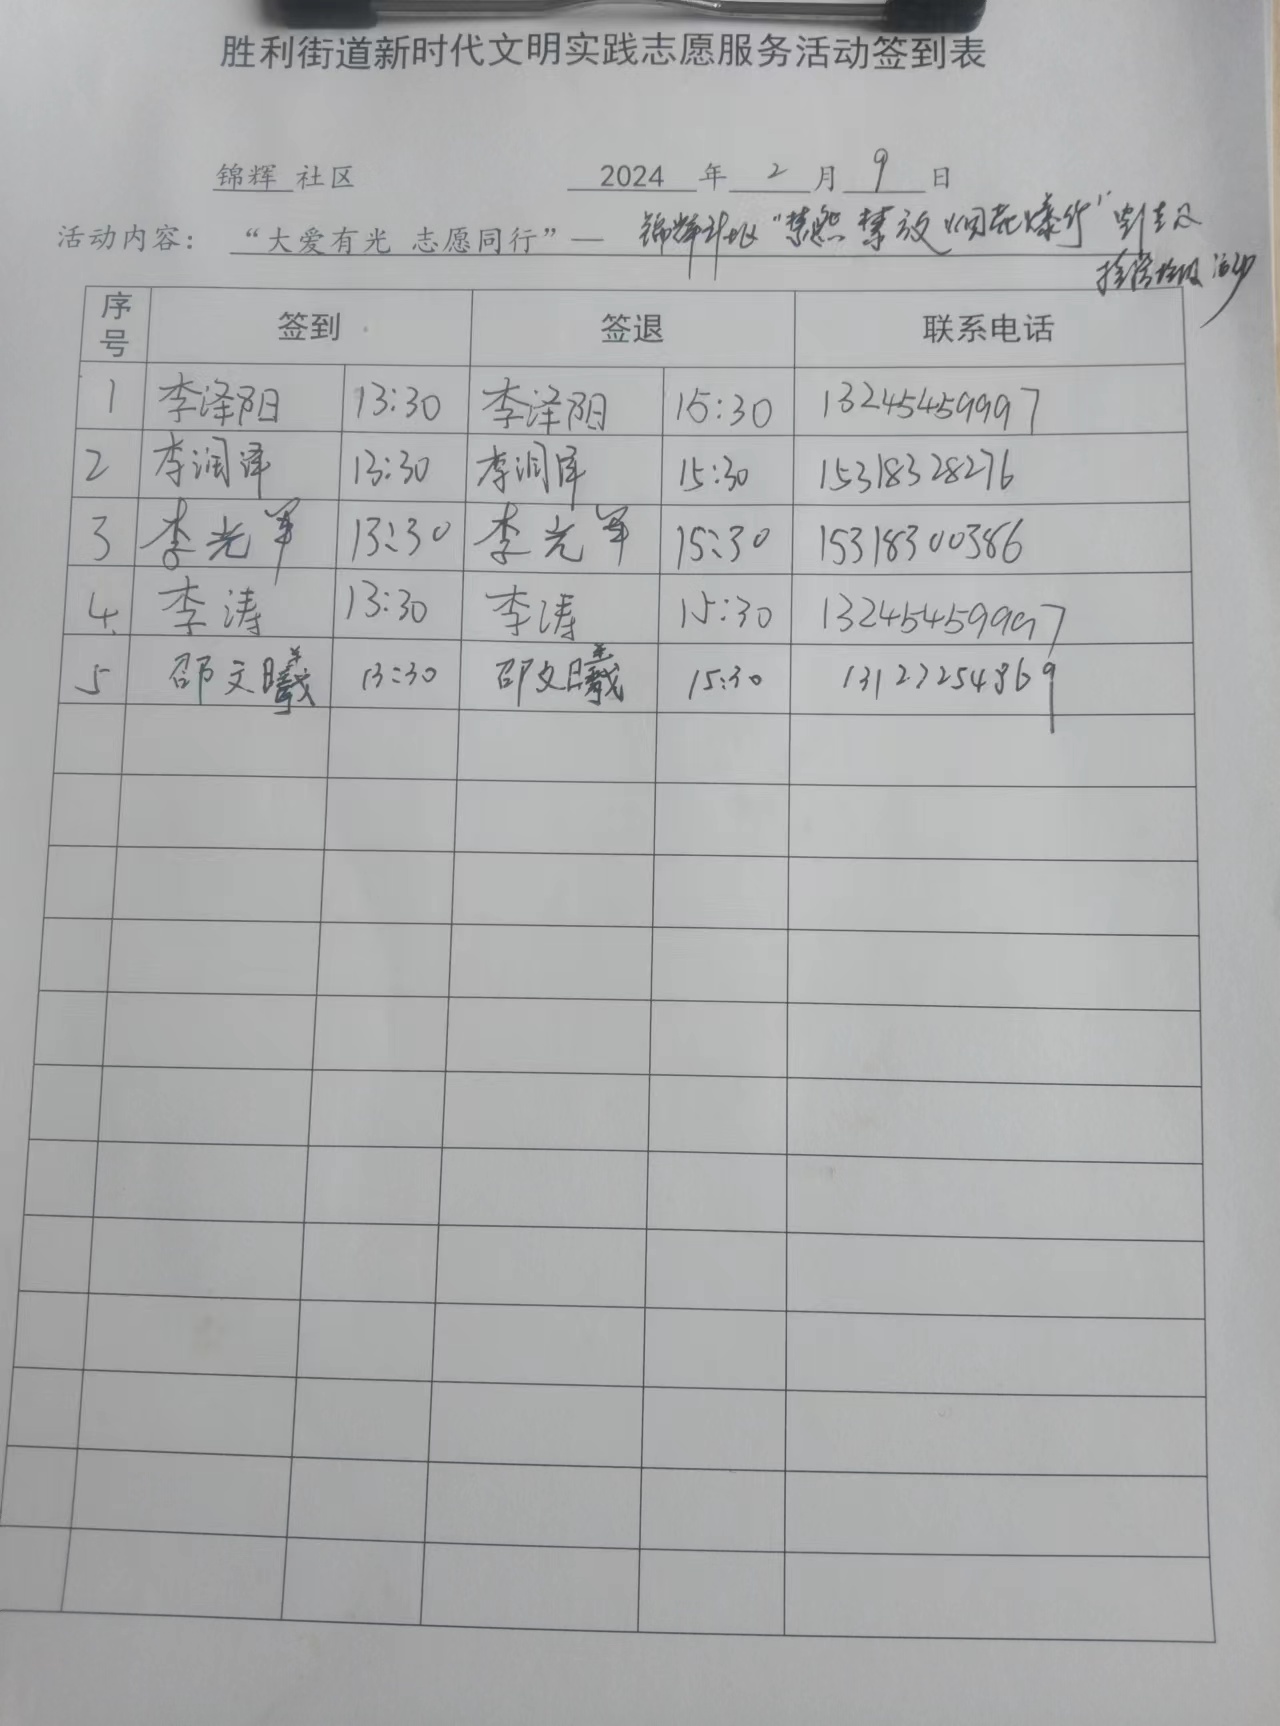 胜利街道新时代文明实践志愿服务活动签到表
锦辉 社区 2024 年 2 月 9 日
活动内容: “大爱有光 志愿同行”— 锦辉社区“禁燃禁放烟花爆竹”
捡拾垃圾活动
序号 签到 签退 联系电话
1 李泽阳 13:30 李泽阳 15:30 13245459997
2 李润泽 13:30 李润泽 15:30 15318328276
3 李光军 13:30 李光军 15:30 15318300386
4 李涛 13:30 李涛 15:30 13245459997
5 邵文曦 13:30 邵文曦 15:30 13127254869